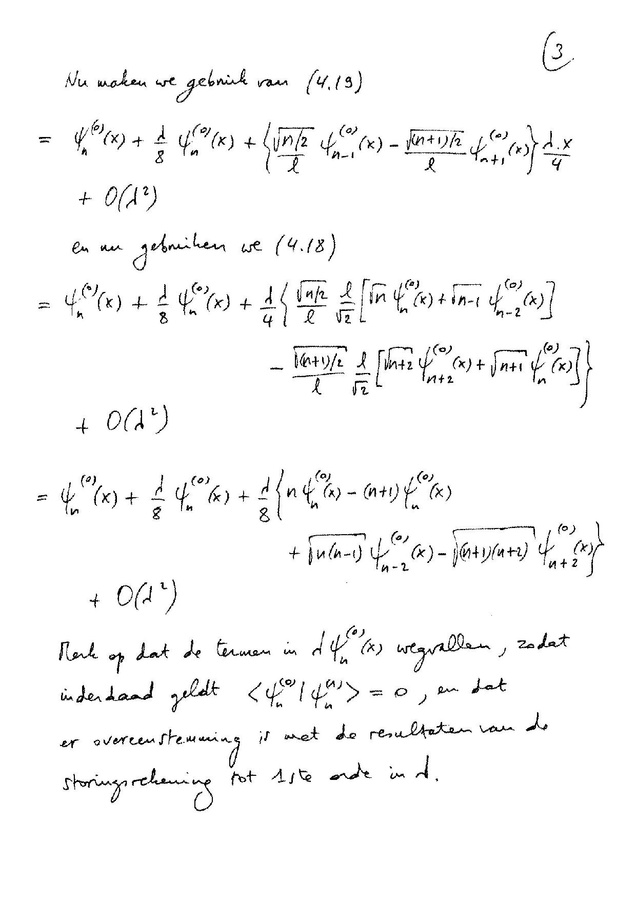 (3
Nu maken we gebruik van (4.19)
= ψₙ⁽⁰⁾(x) + λ/8 ψₙ⁽⁰⁾(x) + { √(n/2)/ℓ ψₙ₋₁⁽⁰⁾(x) − √((n+1)/2)/ℓ ψₙ₊₁⁽⁰⁾(x) } λ.x/4
+ O(λ²)
en nu gebruiken we (4.18)
= ψₙ⁽⁰⁾(x) + λ/8 ψₙ⁽⁰⁾(x) + λ/4 { √(n/2)/ℓ ℓ/√2 [ √n ψₙ⁽⁰⁾(x) + √(n-1) ψₙ₋₂⁽⁰⁾(x) ]
− √((n+1)/2)/ℓ ℓ/√2 [ √(n+2) ψₙ₊₂⁽⁰⁾(x) + √(n+1) ψₙ⁽⁰⁾(x) ] }
+ O(λ²)
= ψₙ⁽⁰⁾(x) + λ/8 ψₙ⁽⁰⁾(x) + λ/8 { n ψₙ⁽⁰⁾(x) − (n+1) ψₙ⁽⁰⁾(x)
+ √(n(n-1)) ψₙ₋₂⁽⁰⁾(x) − √((n+1)(n+2)) ψₙ₊₂⁽⁰⁾(x) }
+ O(λ²)
Merk op dat de termen in λ ψₙ⁽⁰⁾(x) wegvallen, zodat
inderdaad geldt <ψₙ⁽⁰⁾|ψₙ⁽¹⁾> = 0, en dat
er overeenstemming is met de resultaten van de
storingsrekening tot 1ste orde in λ.